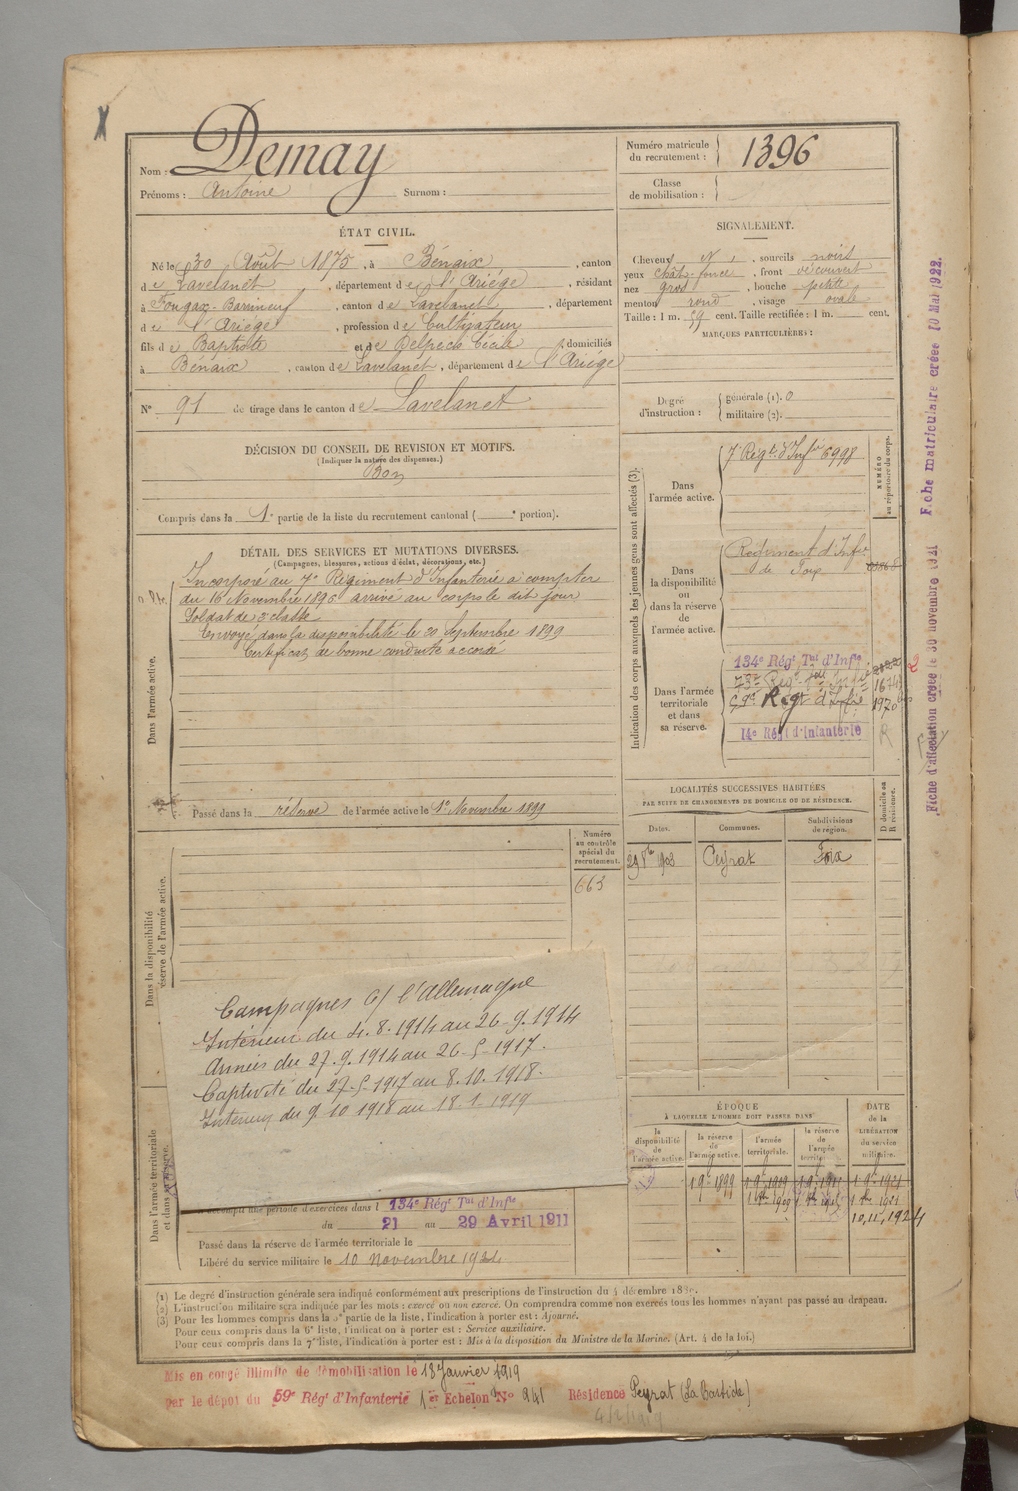 Demay
Nom :
Prénoms : Antoine Surnom :
Numéro matricule
du recrutement : 1396
Classe
de mobilisation :
ÉTAT CIVIL.
Né le 30 Août 1875, à Bénaix, canton
de Lavelanet, département de l'Ariège, résidant
à Fougax-Barrineuf, canton de Lavelanet, département
de l'Ariège, profession de Cultivateur
fils de Baptiste et de Delpech Cécile, domiciliés
à Bénaix, canton de Lavelanet, département de l'Ariège
N° 91 de tirage dans le canton de Lavelanet
SIGNALEMENT.
Cheveux N, sourcils noirs
yeux chât. foncé, front découvert
nez gros, bouche petite
menton rond, visage ovale
Taille : 1 m. 59 cent. Taille rectifiée : 1 m. cent.
MARQUES PARTICULIÈRES :
Degré
d'instruction :
générale (1). 0
militaire (2).
DÉCISION DU CONSEIL DE REVISION ET MOTIFS.
(Indiquer la nature des dispenses.)
Bon
Compris dans la 1e partie de la liste du recrutement cantonal ( e portion).
DÉTAIL DES SERVICES ET MUTATIONS DIVERSES.
(Campagnes, blessures, actions d'éclat, décorations, etc.)
Dans l'armée active.
Incorporé au 7e Régiment d'Infanterie à compter
du 16 Novembre 1896 arrivé au corps le dit jour
Soldat de 2e classe
Envoyé dans la disponibilité le 20 Septembre 1899
Certificat de bonne conduite accordé
Passé dans la réserve de l'armée active le 1er Novembre 1899
Indication des corps auxquels les jeunes gens sont affectés (3).
Dans
l'armée active.
7e Régt. d'Infie 6998
NUMÉRO
au répertoire du corps.
Dans
la disponibilité
ou
dans la réserve
de
l'armée active.
Régiment d'Infie
de Foix
Dans l'armée
territoriale
et dans
sa réserve.
134e Régt Tal d'Infie
59e Régt d'Infie
14e Régt d'Infanterie
1674
1970
R
2
Fiche d'affectation créée le 30 novembre 1921 Fiche matriculaire créée 10 Mai 1922.
LOCALITÉS SUCCESSIVES HABITÉES
PAR SUITE DE CHANGEMENTS DE DOMICILE OU DE RÉSIDENCE.
Dates. Communes. Subdivisions
de région. D domicile ou
R résidence.
29 8bre 1903 Peyrat Foix
Dans la disponibilité
réserve de l'armée active.
Numéro
au contrôle
spécial du
recrutement.
663
Campagnes c/ l'Allemagne
Intérieur du 4.8.1914 au 26-9.1914
Armées du 27.9.1914 au 26-5-1917.
Captivité du 27-5-1917 au 8.10.1918.
Intérieur du 9.10 1918 au 18.1.1919
ÉPOQUE
À LAQUELLE L'HOMME DOIT PASSER DANS
la
disponibilité
de
l'armée active.
la réserve
de
l'armée active.
l'armée
territoriale.
la réserve
de
l'armée
territ.
DATE
de la
LIBÉRATION
du service
militaire.
1 9bre 1899
10, 11, 1924
Dans l'armée territoriale
et dans sa réserve.
A accompli une période d'exercices dans l 134e Régt Tal d'Infie
du 21 au 29 Avril 1911
Passé dans la réserve de l'armée territoriale le
Libéré du service militaire le 10 novembre 1924
(1) Le degré d'instruction générale sera indiqué conformément aux prescriptions de l'instruction du 4 décembre 1889.
(2) L'instruction militaire sera indiquée par les mots : exercé ou non exercé. On comprendra comme non exercés tous les hommes n'ayant pas passé au drapeau.
(3) Pour les hommes compris dans la 5e partie de la liste, l'indication à porter est : Ajourné.
Pour ceux compris dans la 6e liste, l'indication à porter est : Service auxiliaire.
Pour ceux compris dans la 7e liste, l'indication à porter est : Mis à la disposition du Ministre de la Marine. (Art. 4 de la loi.)
Mis en congé illimité de démobilisation le 18 Janvier 1919
par le dépôt du 59e Régt d'Infanterie 1er Echelon N° 241 Résidence Peyrat (La Bastide)